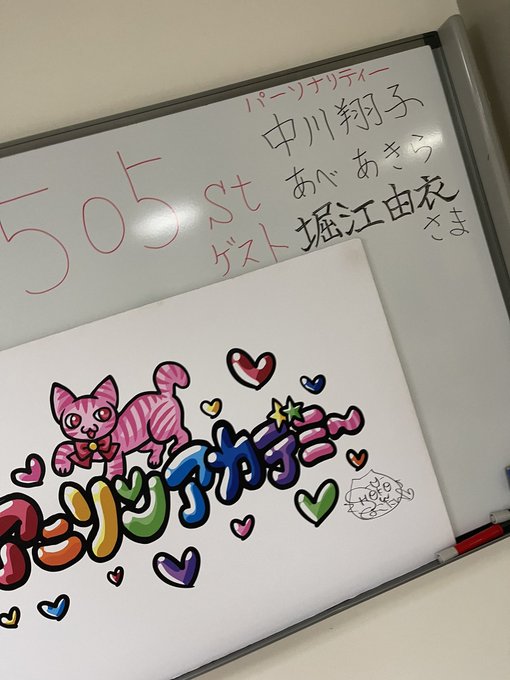 505st
パーソナリティー
中川翔子
あべ あきら
ゲスト 堀江由衣
さま
アニソンアカデミ〜